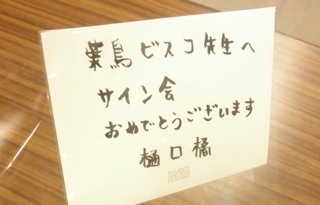 葉鳥ビスコ先生へ
サイン会
おめでとうございます
樋口橘